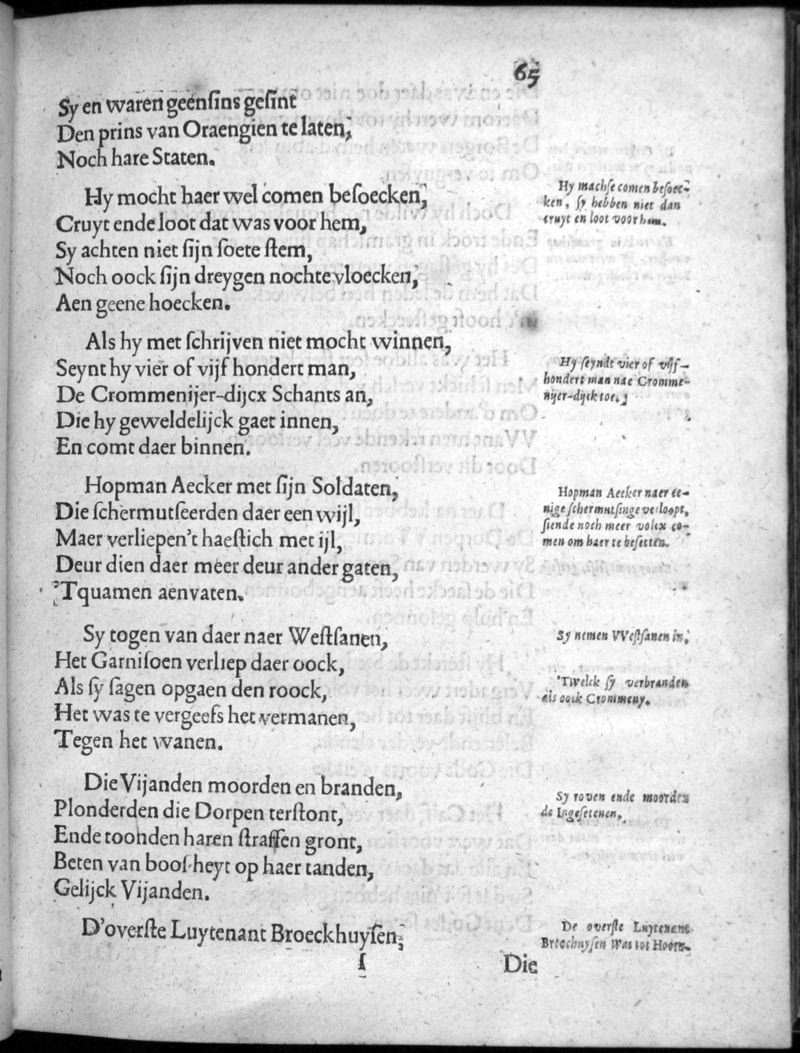 65
Sy en waren geensins gesint
Den prins van Oraengien te laten,
Noch hare Staten.
Hy mocht haer wel comen besoecken,
Cruyt ende loot dat was voor hem,
Sy achten niet sijn soete stem,
Noch oock sijn dreygen nochte vloecken,
Aen geene hoecken.
Hy machse comen besoec-
ken, sy hebben niet dan
cruyt en loot voor hem.
Als hy met schrijven niet mocht winnen,
Seynt hy vier of vijf hondert man,
De Crommenijer-dijcx Schants an,
Die hy geweldelijck gaet innen,
En comt daer binnen.
Hy seyndt vier of vijf-
hondert man nae Cromme-
nijer-dijck toe.
Hopman Aecker met sijn Soldaten,
Die schermutseerden daer een wijl,
Maer verliepen't haestich met ijl,
Deur dien daer meer deur ander gaten,
'Tquamen aenvaten.
Hopman Aecker naer ee-
nige schermutsinge verloopt,
siende noch meer volcx co-
men om haer te besetten.
Sy togen van daer naer Westsanen,
Het Garnisoen verliep daer oock,
Als sy sagen opgaen den roock,
Het was te vergeefs het vermanen,
Tegen het wanen.
Sy nemen VVestsanen in,
'Twelck sy verbranden
als oock Crommeny.
Die Vijanden moorden en branden,
Plonderden die Dorpen terstont,
Ende toonden haren straffen gront,
Beten van boosheyt op haer tanden,
Gelijck Vijanden.
Sy roven ende moorden
de Ingesetenen.
D'overste Luytenant Broeckhuysen,
De overste Luytenant
Broechuysen Was tot Hoorn.
I
Die